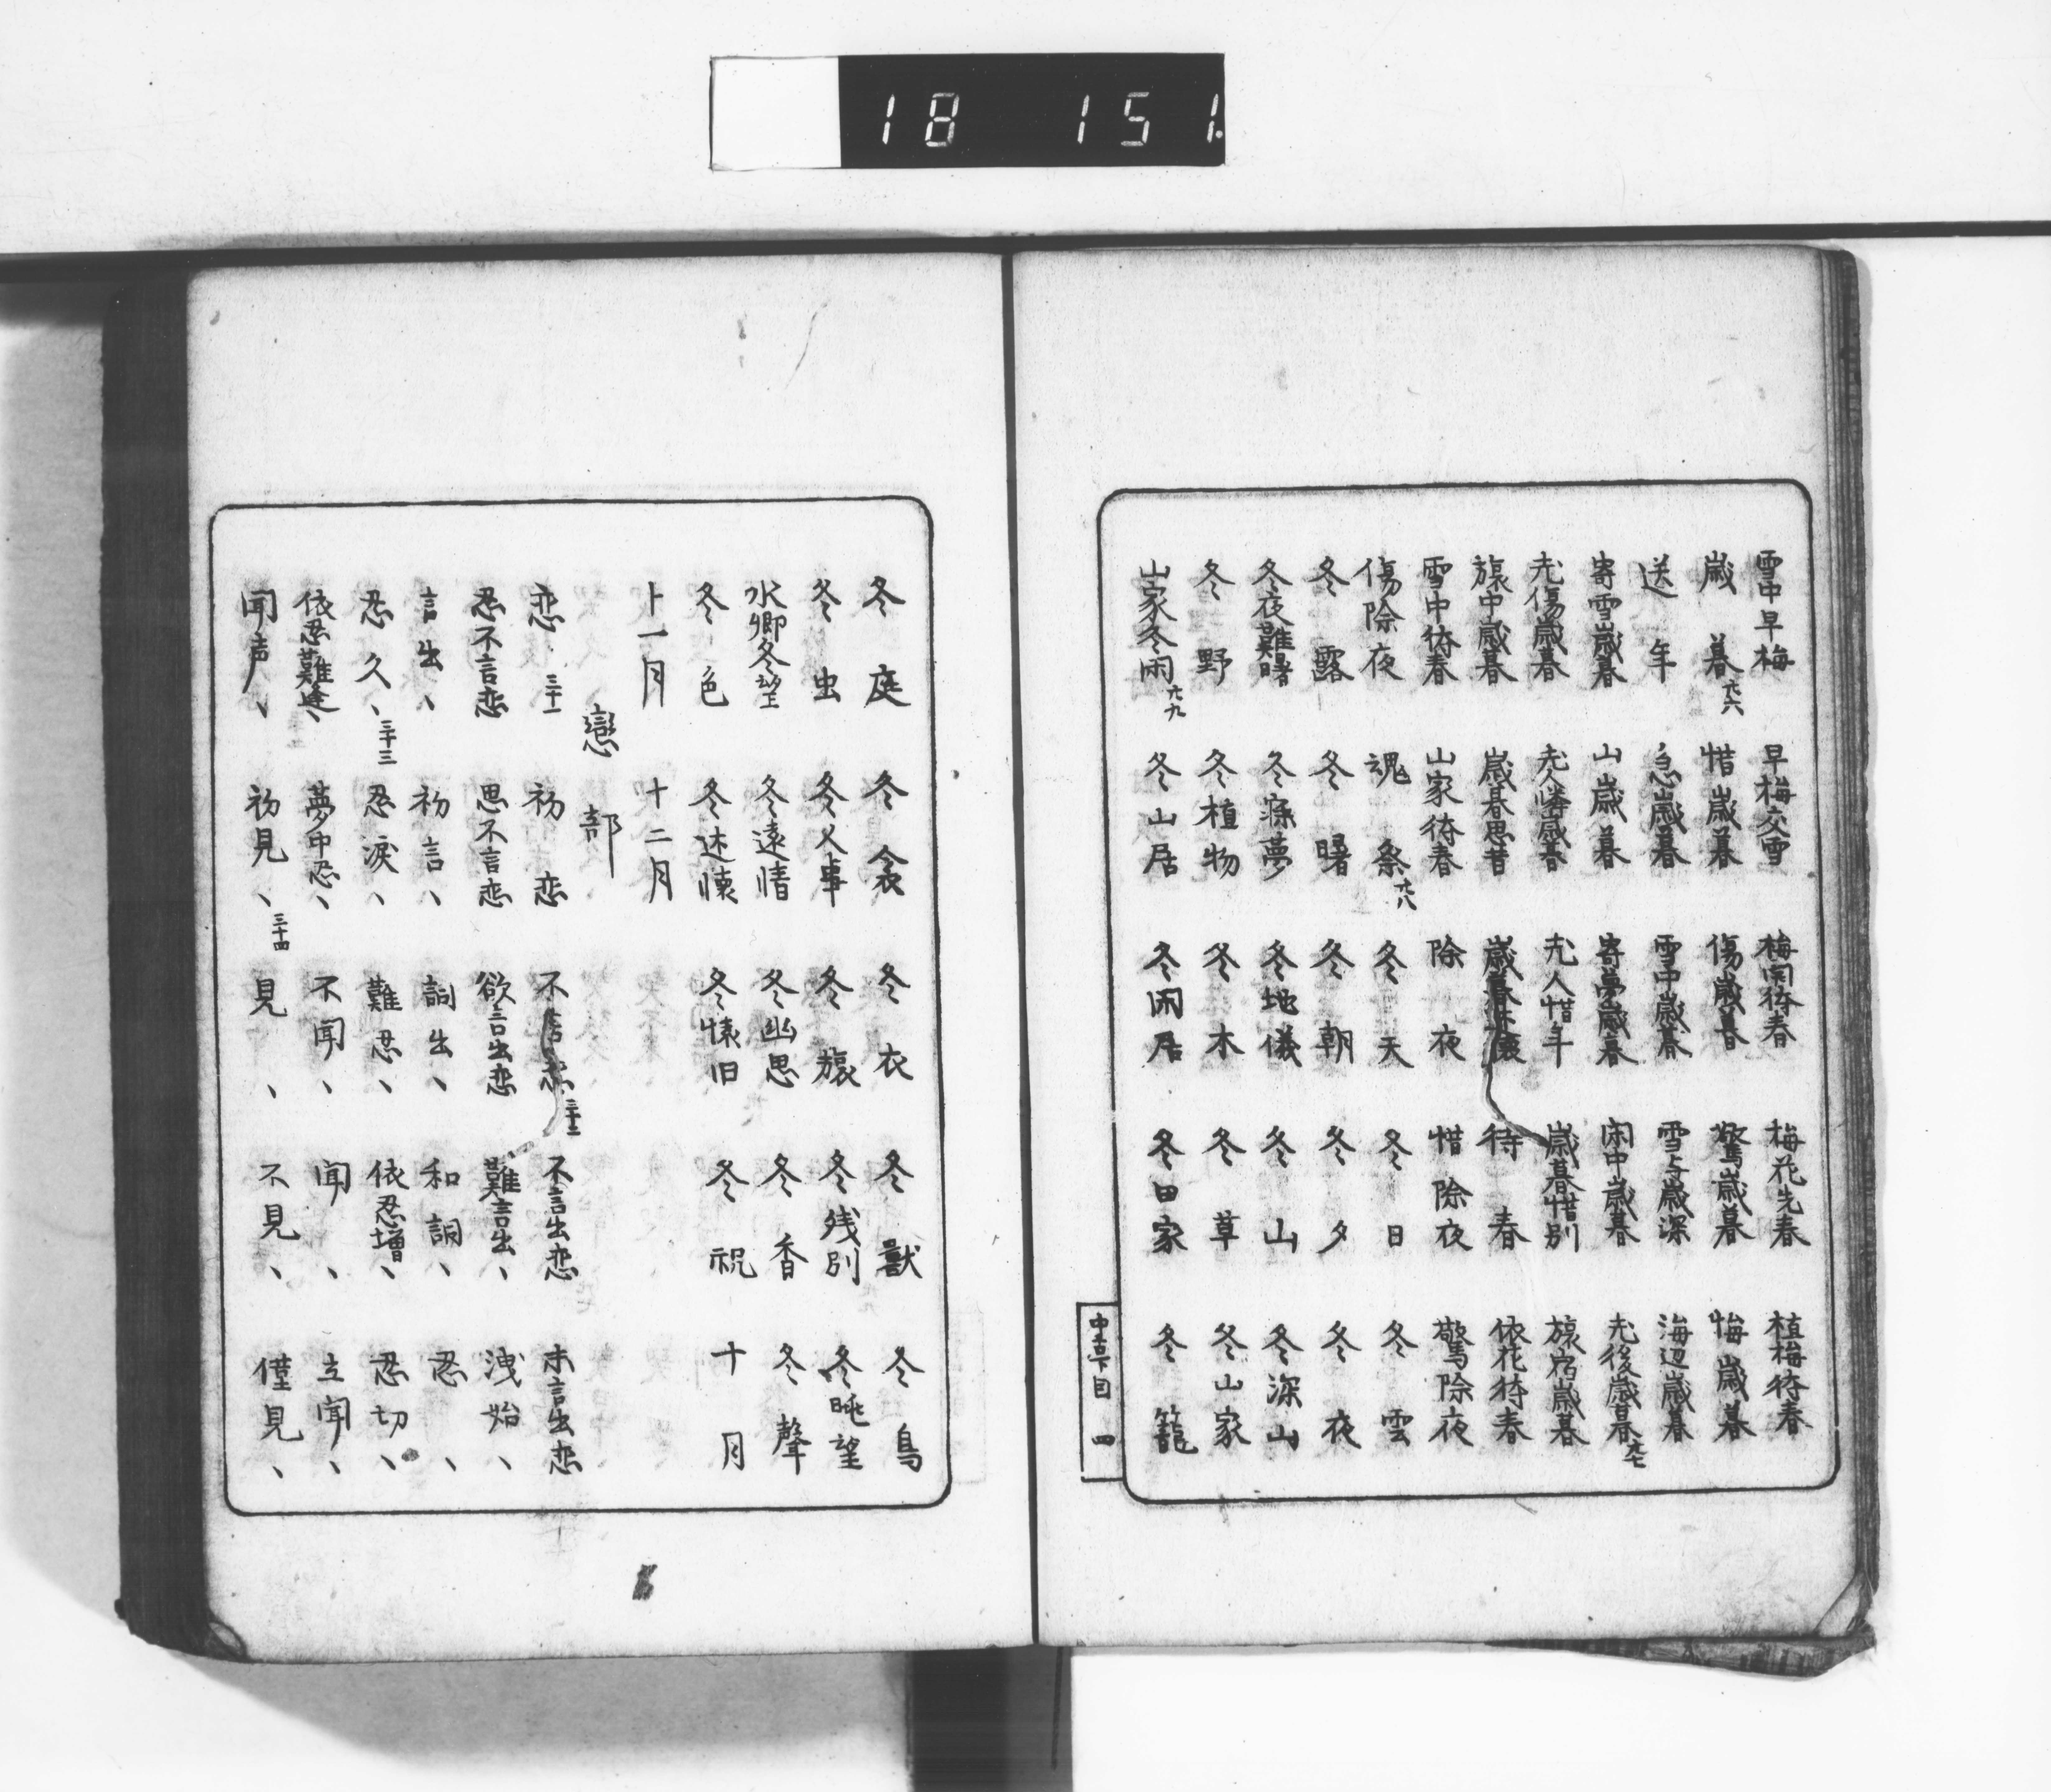 18 151
雪中早梅 早梅交雪 梅開待春 梅花先春 植梅待春
歳暮 六六 惜歳暮 傷歳暮 驚歳暮 悔歳暮
送年 急歳暮 雪中歳暮 雪与歳深 海辺歳暮
寄雪歳暮 山歳暮 寄夢歳暮 閑中歳暮 老後歳暮 六七
老傷歳暮 老人憐歳暮 老人惜年 歳暮惜別 旅宿歳暮
旅中歳暮 歳暮思昔 歳暮述懐 待春 依花待春
雪中待春 山家待春 除夜 惜除夜 驚除夜
傷除夜 魂祭 六八 冬天 冬日 冬雲
冬露 冬曙 冬朝 冬夕 冬夜
冬夜難曙 冬寐夢 冬地儀 冬山 冬深山
冬野 冬植物 冬木 冬草 冬山家
山家冬雨 六九 冬山居 冬閑居 冬田家 冬籠
四
冬庭 冬衾 冬衣 冬獣 冬鳥
冬虫 冬人事 冬旅 冬残別 冬眺望
水郷冬望 冬遠情 冬幽思 冬香 冬聲
冬色 冬述懐 冬懐旧 冬祝 十月
十一月 十二月
戀部
恋 三十一 初恋 不言恋 三十二 不言出恋 未言出恋
忍不言恋 思不言恋 欲言出恋 難言出、 洩始、
言出、 初言、 詞出、 和詞、 忍、
忍久、 三十三 忍涙、 難忍、 依忍増、 忍切、
依忍難逢、 夢中忍、 不聞、 聞、 立聞、
聞声、 初見、 三十四 見、 不見、 僅見、